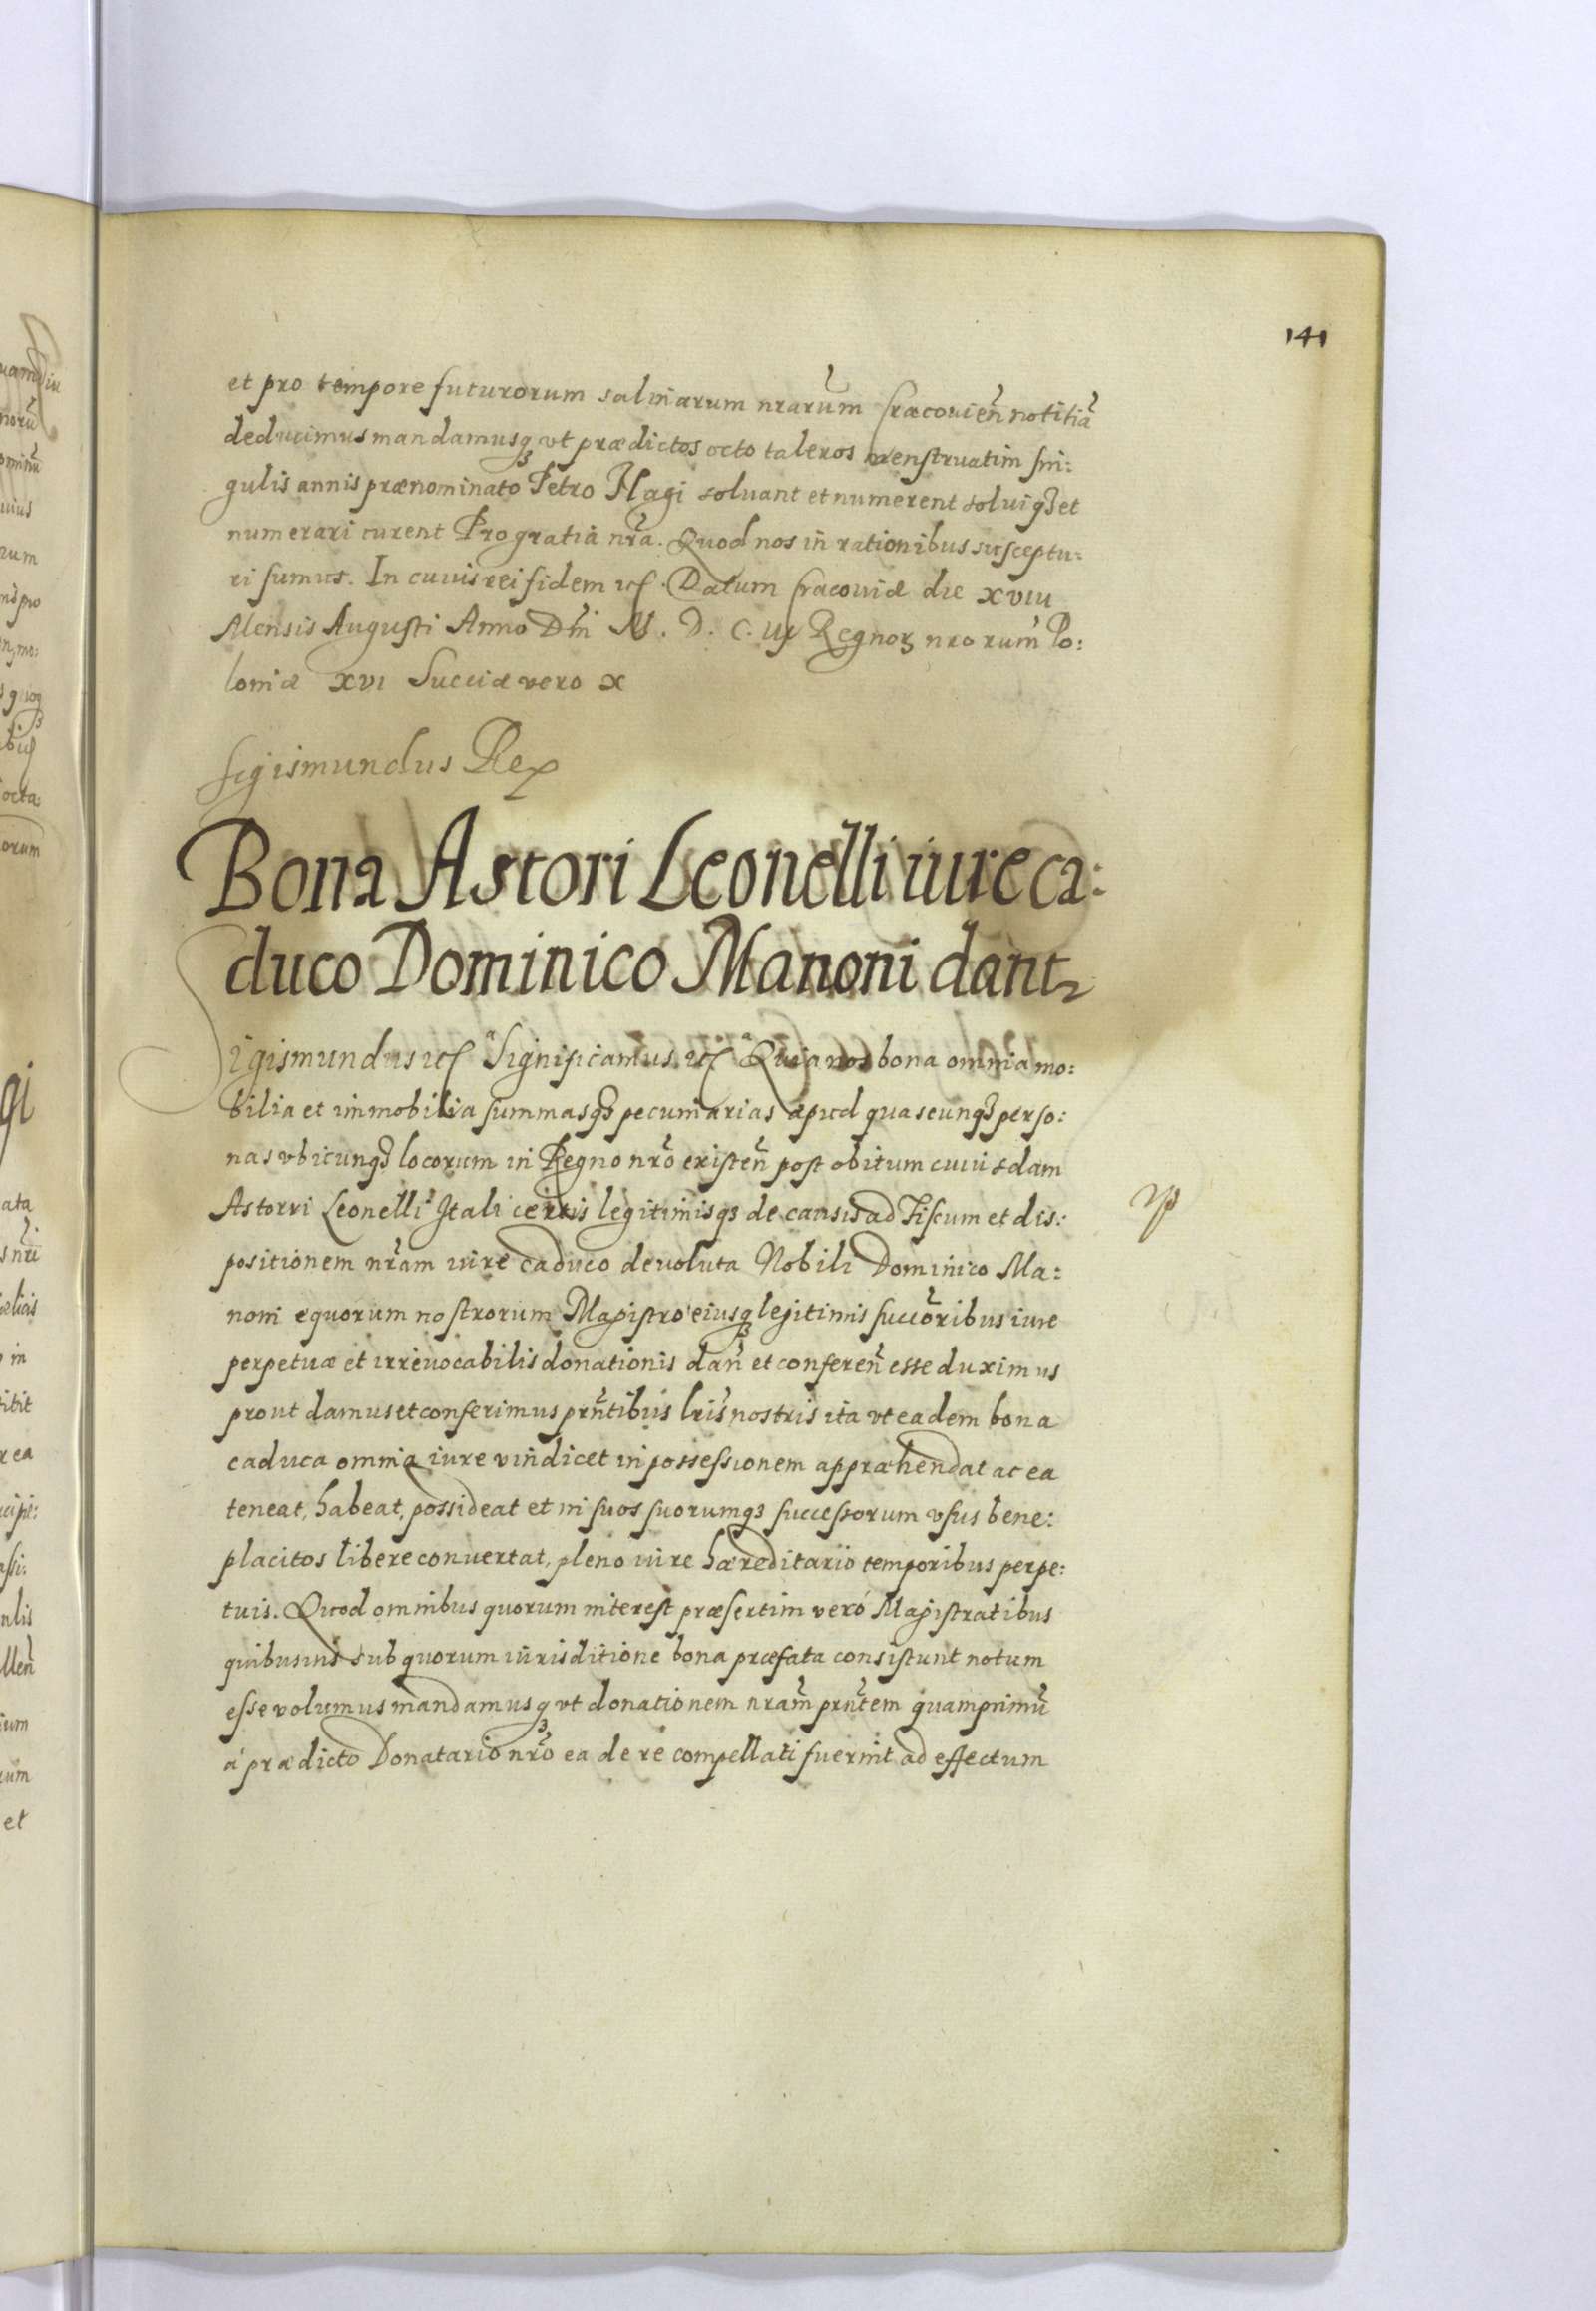 141
et pro tempore futurorum salinarum nrarum Cracovien̄ notitiã
deducimus mandamusq₃ vt prædictos octo taleros menstruatim sin:
gulis annis prænominato Petro Hagi solvant et numerent solviq₃ et
numerari curent Pro gratia nr̃a. Quod nos in rationibus susceptu:
ri sumus. In cuuis rei fidem etc̃. Datum Cracouiæ die XVIII
Mensis Augusti Anno Dñi M. D. C. III Regnoꝝ nrorum Po:
loniæ XVI Sueciæ vero X
Sigismundus Rex
Bona Astori Leonelli iure ca:
duco Dominico Manoni dantr
Sigismundus etc̃ Significamus etc̃ Quia nos bona omnia mo:
bilia et immobilia summasq₃ pecuniarias apud quascunq₃ perso:
nas vbicunq₃ locorum in Regno nr̃o existen̄ post obitum cuiusdam
Astorri Leonelli Itali certis legitimisq₃ de causis ad Fiscum et dis:
positionem nr̃am iure caduco devoluta Nobili Dominico Ma:
noni equorum nostrorum Magistro eiusq₃ legitimis succõribus iure
perpetuæ et irrevocabilis donationis dan̄ et conferen̄ esse duximus
prout damus et conferimus prñtibus lris̃ nostris ita vt eadem bona
caduca omnia iure vindicet in possessionem appræhendat ac ea
teneat, habeat, possideat et in suos suorumq₃ successorum vsus bene:
placitos libere convertat, pleno iure hæreditario temporibus perpe:
tuis. Quod omnibus quorum interest præsertim veró Magistratibus
quibusuis sub quorum iurisditione bona præfata consistunt notum
esse volumus mandamusq₃ vt donationem nram̃ prñtem quamprimũ
á prædicto Donatario nr̃o ea de re compellati fuerint ad effectum